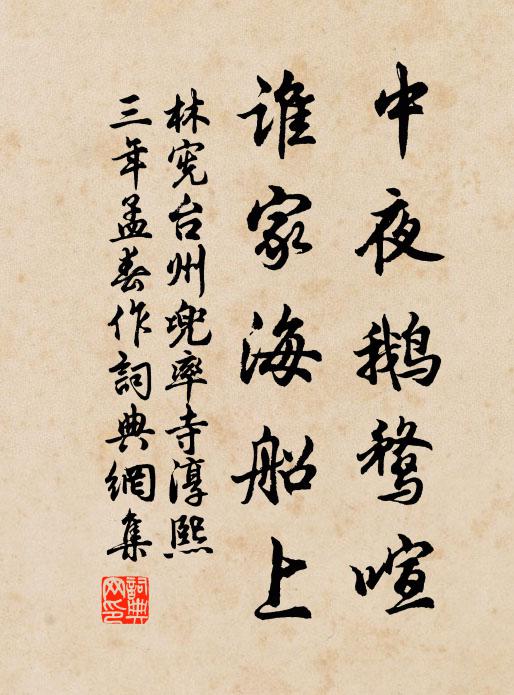 中夜鹅鹜喧
谁家海船上
林宪台州兜率寺淳熙
三年孟春作詞典網集
詞典
网印